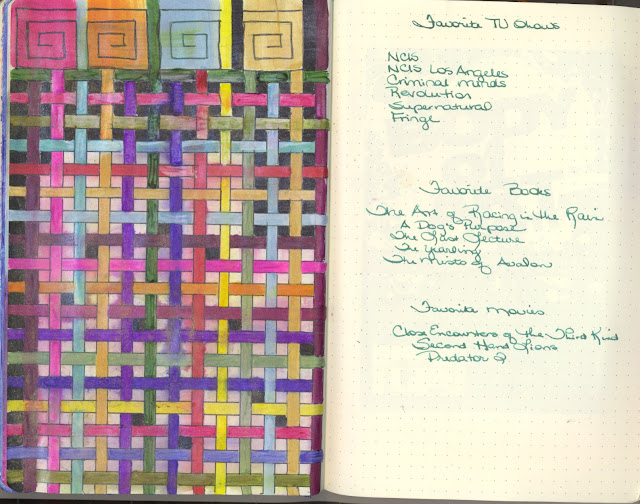 Favorite TV Shows
NCIS
NCIS Los Angeles
Criminal Minds
Revolution
Supernatural
Fringe
Favorite Books
The Art of Racing in the Rain
A Dog's Purpose
The Last Lecture
The Yearling
The Mists of Avalon
Favorite Movies
Close Encounters of the Third Kind
Second Hand Lions
Predator 2